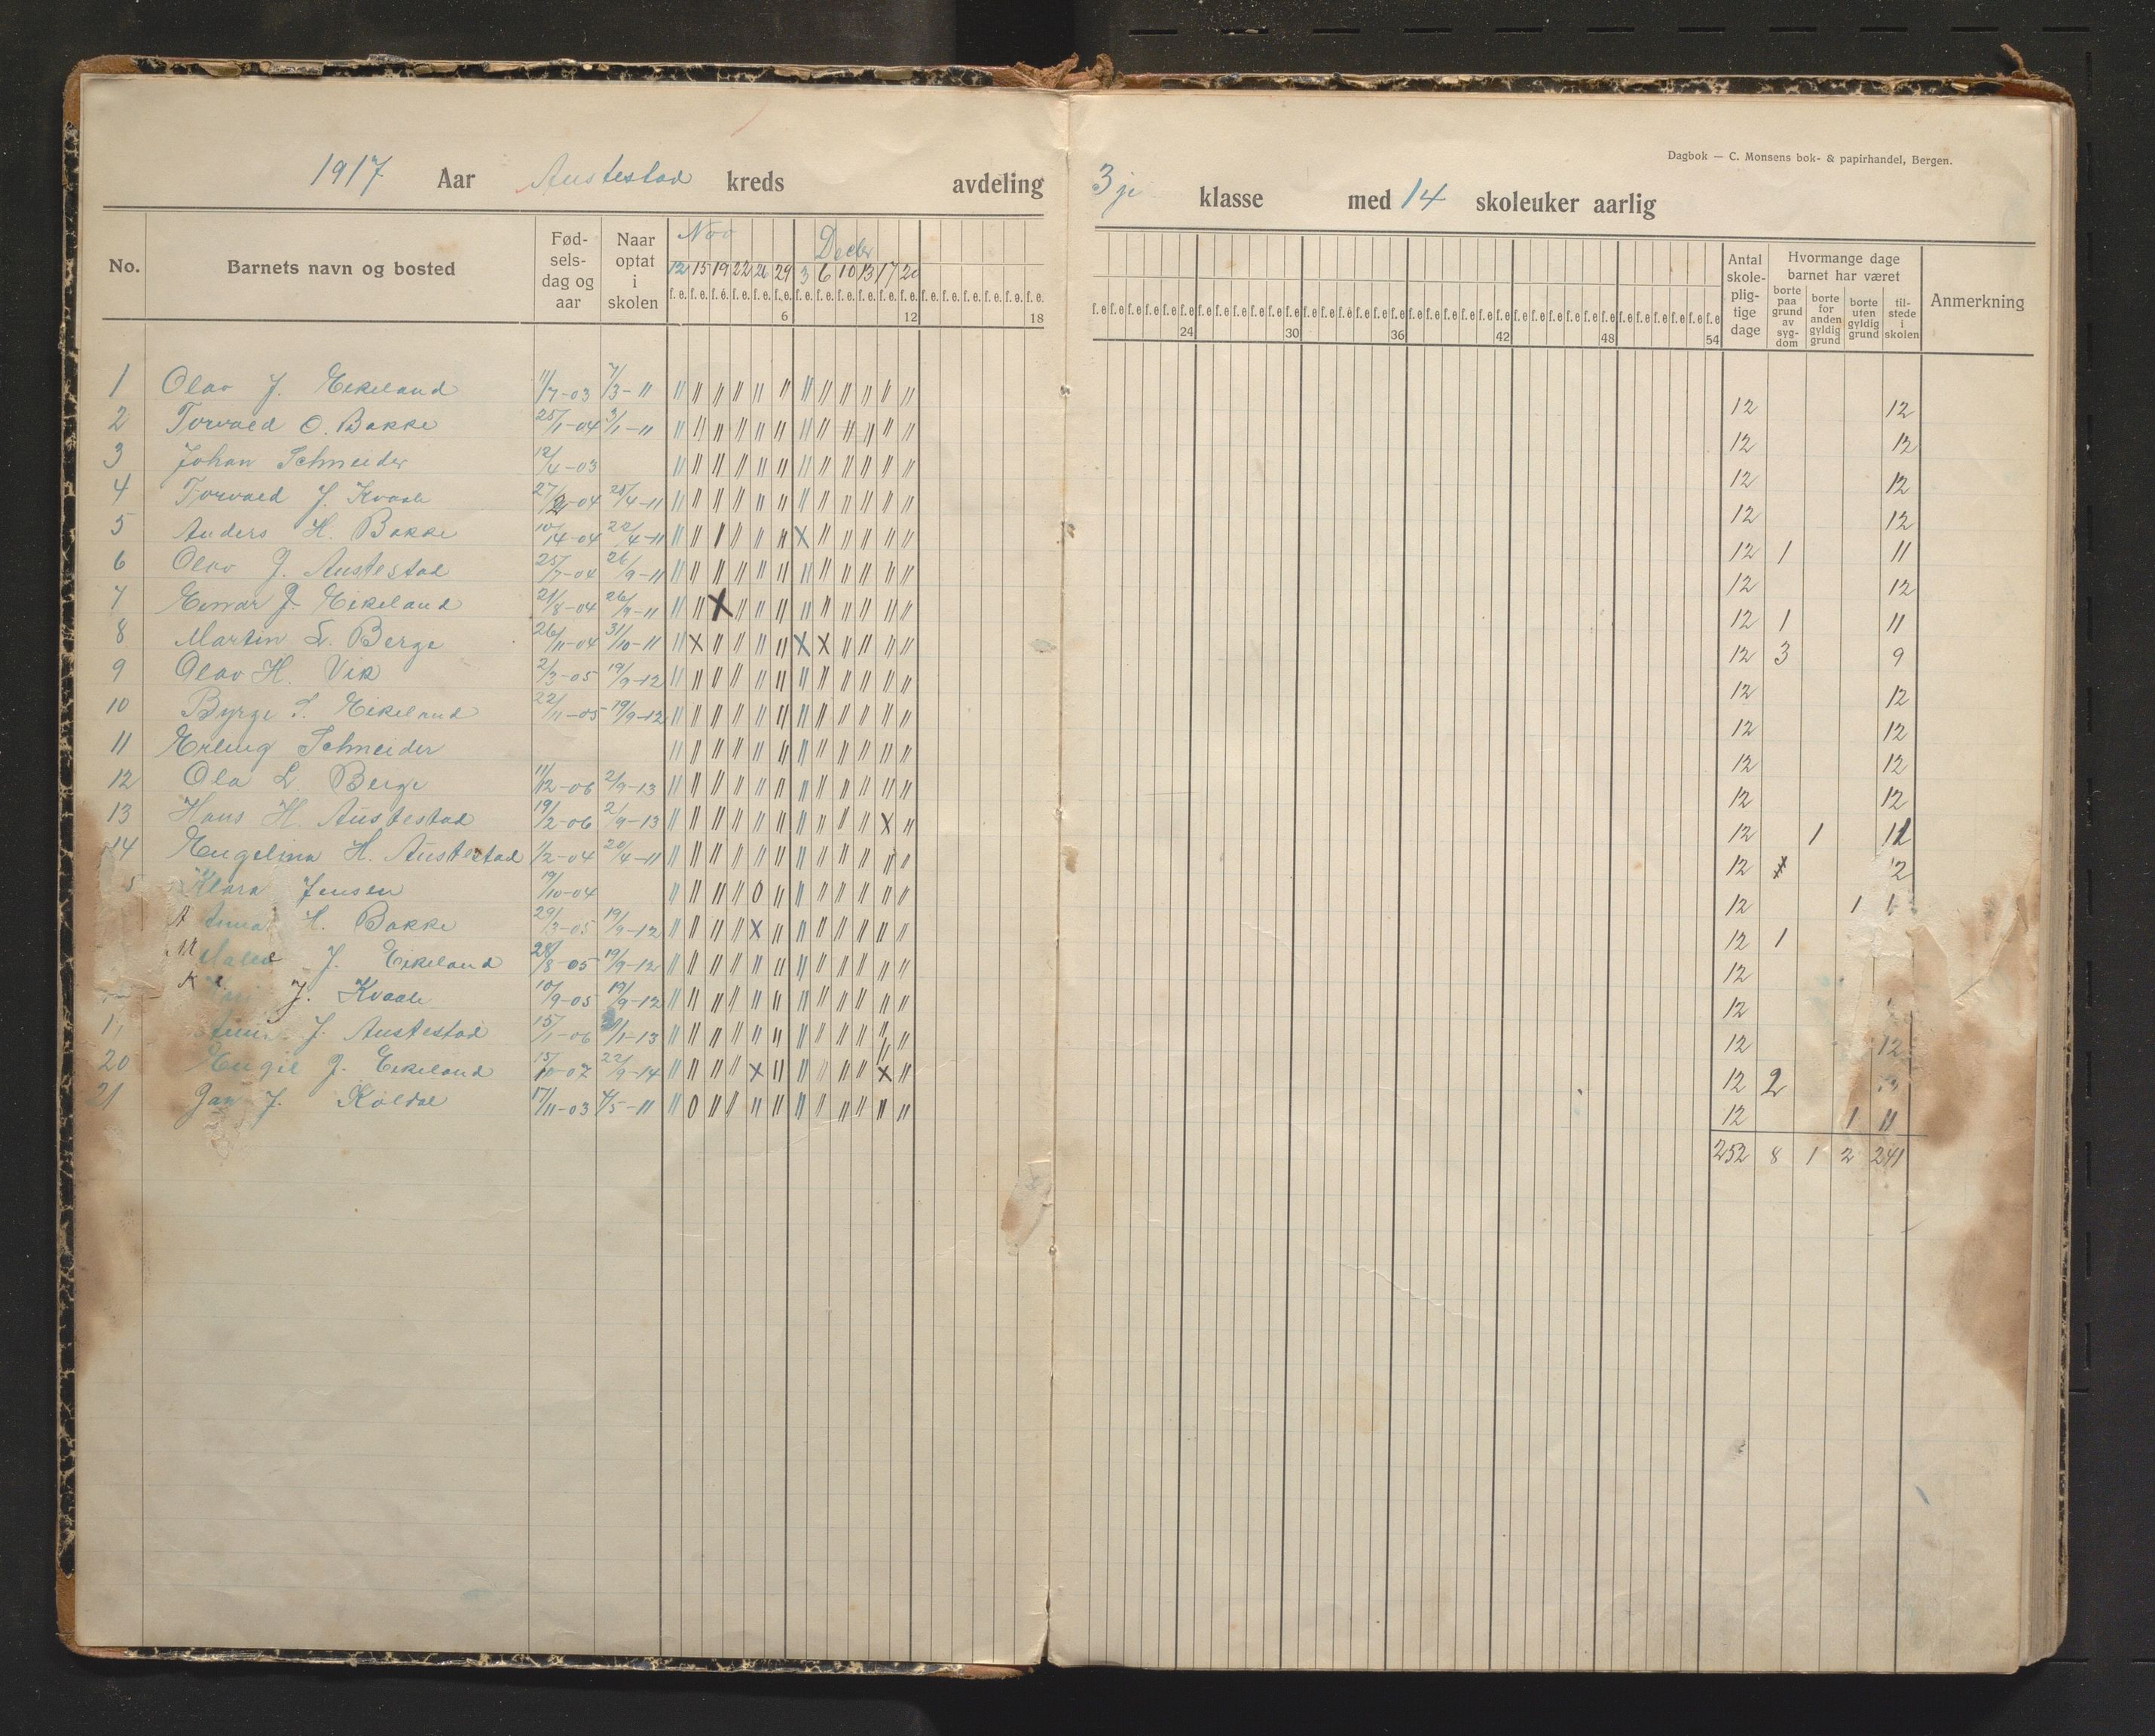 Dagbok — C. Monsens bok- & papirhandel, Bergen.
1917 Aar Austestad kreds avdeling 3je klasse med 14 skoleuker aarlig
No. Barnets navn og bosted Fødselsdag og aar Naar optat i skolen Nov Decbr Antal skolepligtige dage Hvormange dage barnet har været Anmerkning
borte paa grund av sygdom borte for anden gyldig grund borte uten gyldig grund tilstede i skolen
12 15 19 22 26 29 3 6 10 13 17 20
f. e. f. e. f. e. f. e. f. e. f. e. f. e. f. e. f. e. f. e. f. e. f. e. f. e. f. e. f. e. f. e. f. e. f. e.
6 12 18 24 30 36 42 48 54
1 Olav J. Eikeland 11/7-03 7/3-11 12 12
2 Torvald O. Bakke 25/1-04 3/1-11 12 12
3 Johan Schneider 12/4-03 12 12
4 Torvald J. Kvaale 27/2-04 25/4-11 12 12
5 Anders H. Bakke 10/14-04 22/4-11 X 12 1 11
6 Olav J. Austestad 25/7-04 26/9-11 12 12
7 Einar J. Eikeland 21/8-04 26/9-11 X 12 1 11
8 Martin L. Berge 26/11-04 31/10-11 X X X 12 3 9
9 Olav H. Vik 2/3-05 19/9-12 12 12
10 Byrge S. Eikeland 22/11-05 19/9-12 12 12
11 Erling Schneider 12 12
12 Ola L. Berge 11/12-06 2/9-13 12 12
13 Hans H. Austestad 19/2-06 2/9-13 X 12 1 11
14 Engelina H. Austestad 1/2-04 20/4-11 12 12
Klara Jensen 19/10-04 0 12 1
Anna H. Bakke 29/3-05 19/9-12 X 12 1
J. Eikeland 28/8-05 19/9-12 12
J. Kvaale 10/9-05 19/9-12 12
J. Austestad 15/1-06 /1-13 12 12
20 Engil J. Eikeland 15/10-07 22/9-14 X X 12 2
21 Jan J. Koldal 17/11-03 4/5-11 0 12 1 11
252 8 1 2 241